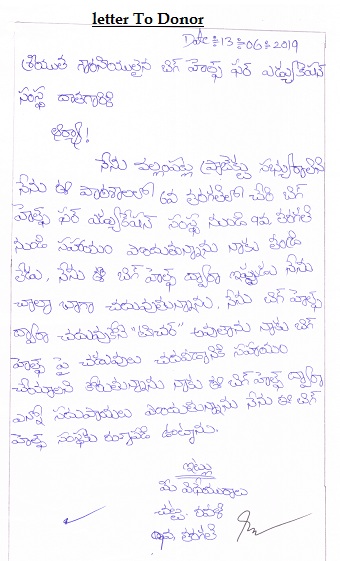 letter To Donor
Date :: 13 :: 06 :: 2019
శ్రీయుత గౌరవనీయులైన బిగ్ హెల్ప్ ఫర్ ఎడ్యుకేషన్
సంస్థ దాతగారికి
ఆర్యా!
నేను
నేను ఈ పాఠశాలలో 6వ తరగతిలో చేరి బిగ్
హెల్ప్ ఫర్ ఎడ్యుకేషన్ సంస్థ నుండి 9వ తరగతి
నుండి సహాయం పొందుతున్నాను నాకు తండ్రి
లేడు. నేను ఈ బిగ్ హెల్ప్ ద్వారా ఇప్పుడు నేను
చాలా బాగా చదువుతున్నాను. నేను బిగ్ హెల్ప్
ద్వారా చదువుకొని "టీచర్" అవుతాను నాకు బిగ్
హెల్ప్ పై చదువులు చదవడానికి సహాయం
చేయాలని కోరుతున్నాను నాకు ఈ బిగ్ హెల్ప్ ద్వారా
ఎన్నో సదుపాయాలు పొందుతున్నాను నేను ఈ బిగ్
హెల్ప్ సంస్థకు ఉంటాను.
ఇట్లు
మీ విధేయురాలు
తరగతి